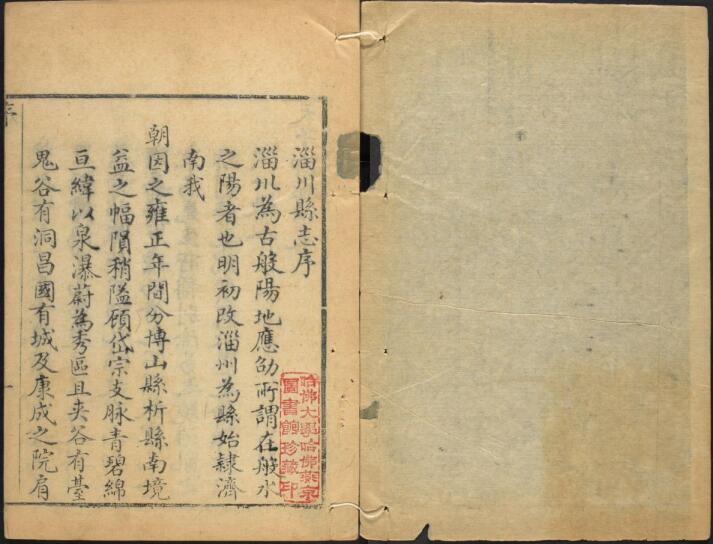 淄川縣志序
淄川為古般陽地應劭所謂在般水
之陽者也明初改淄州為縣始隷濟
南我
朝因之雍正年間分博山縣析縣南境
益之幅隕稍隘頋岱宗支脉青碧綿
亘緯以泉瀑蔚為秀區且夾谷有臺
鬼谷有洞昌國有城及康成之院肩
序
一
哈佛大學哈佛燕京
圖書館珍藏印